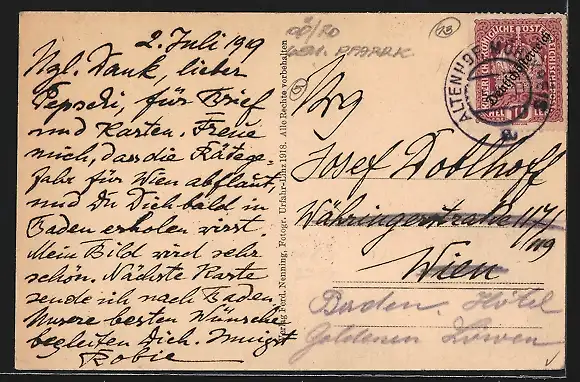 2. Juli 1919
Hzl. Dank, lieber
Pepscki, für Brief
und Karten. Freue
mich, dass die Rätege-
fahr für Wien abflaut,
und Du Dich bald in
Baden erholen wirst.
Mein Bild wird sehr
schön. Nächste Karte
sende ich nach Baden.
Unsere besten Wünsche
begleiten Dich. Innigst
Robie
Verlag Ferd. Nenning, Fotogr. Urfahr-Linz 1918. Alle Rechte vorbehalten
13
ALTENHOF
Deutschösterreich
10
Josef Doblhoff
Währingerstraße
Wien
Baden, Hôtel
Goldenen Löwen